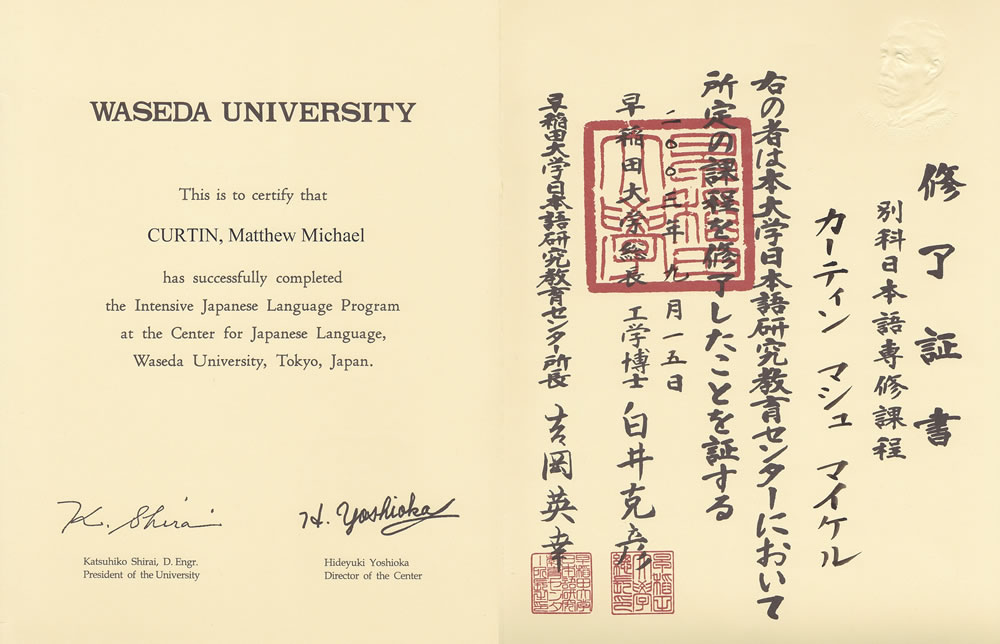 WASEDA UNIVERSITY
This is to certify that
CURTIN, Matthew Michael
has successfully completed
the Intensive Japanese Language Program
at the Center for Japanese Language,
Waseda University, Tokyo, Japan.
K. Shirai
H. Yoshioka
Katsuhiko Shirai, D. Engr.
President of the University
Hideyuki Yoshioka
Director of the Center
修了証書
別科日本語専修課程
カーティン マシュ マイケル
右の者は本大学日本語研究教育センターにおいて
所定の課程を修了したことを証する
二〇〇三年九月一五日
早稲田大学総長 工学博士 白井克彦
早稲田大学日本語研究教育センター所長 吉岡英幸